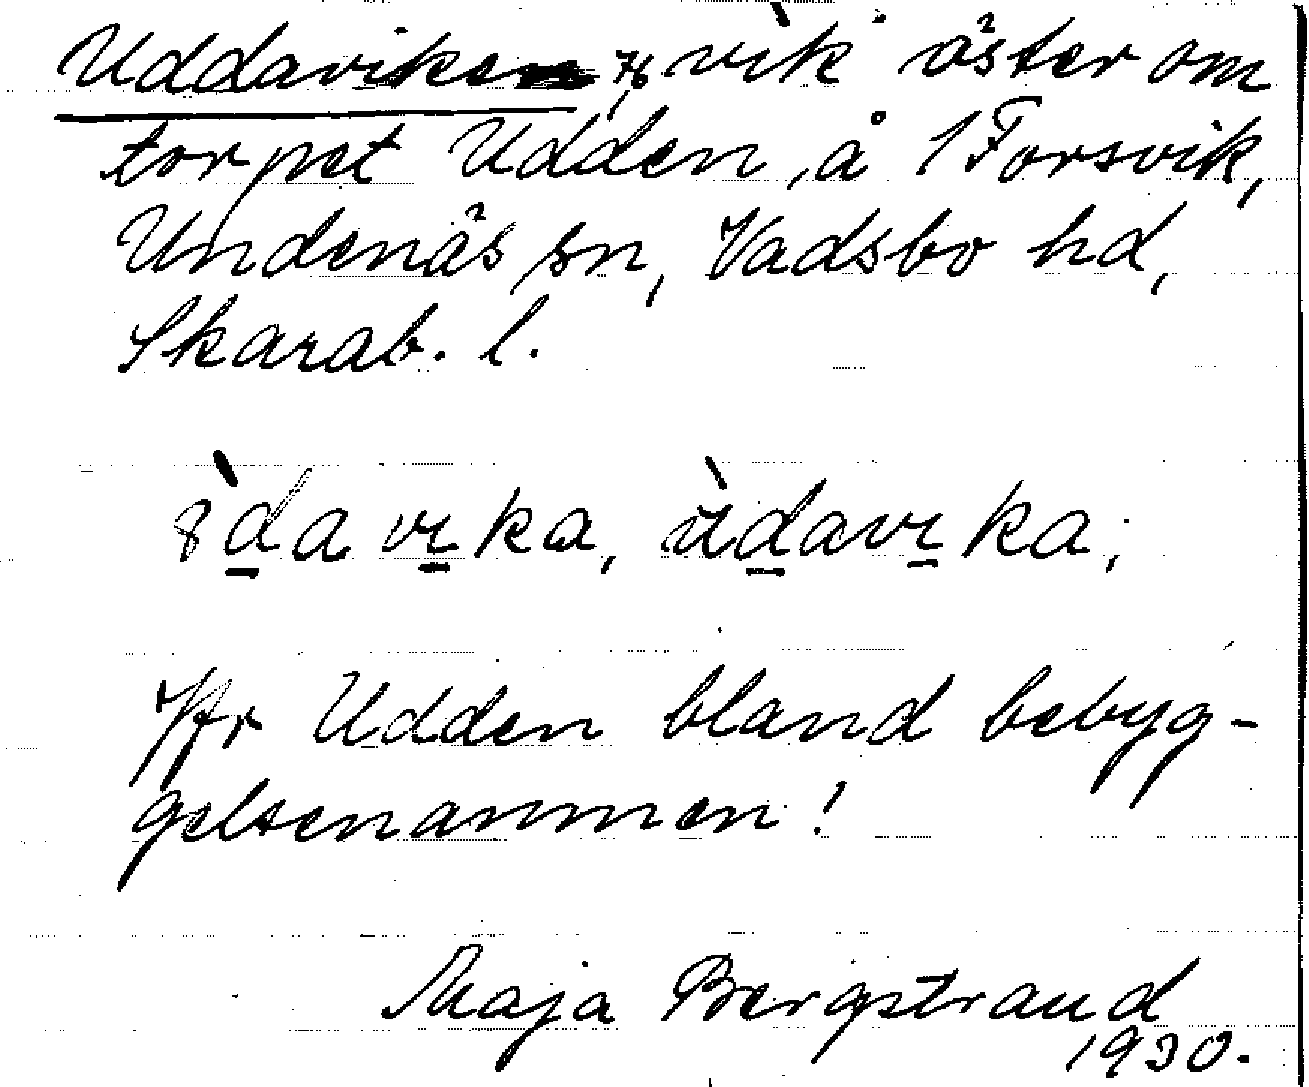 Uddaviken, 76, vik öster om
torpet Udden, å 1 Forsvik,
Undenäs sn, Vadsbo hd,
Skarab. l.
davɩka, davɩka,
Jfr Udden bland bebyg-
gelsenamnen!
Maja Bergstrand
1930.